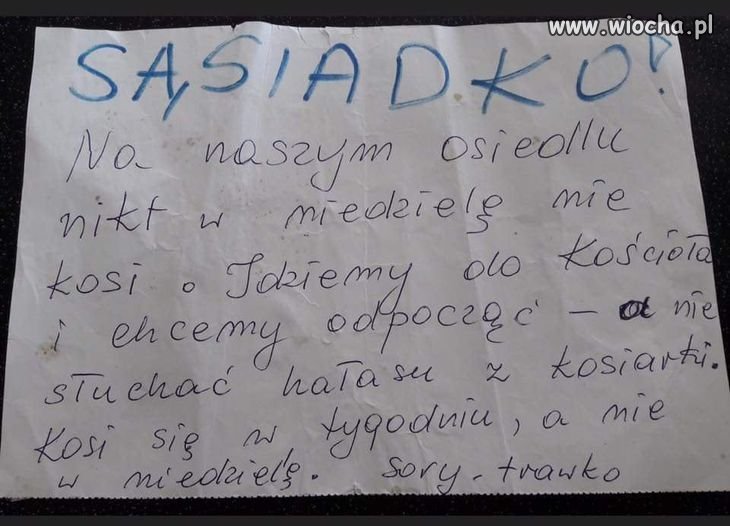 www.wiocha.pl
SĄSIADKO!
Na naszym osiedlu
nikt w niedzielę nie
kosi. Idziemy do Kościoła
i chcemy odpocząć - a nie
słuchać hałasu z kosiarki.
Kosi się w tygodniu, a nie
w niedzielę. Sory. trawko